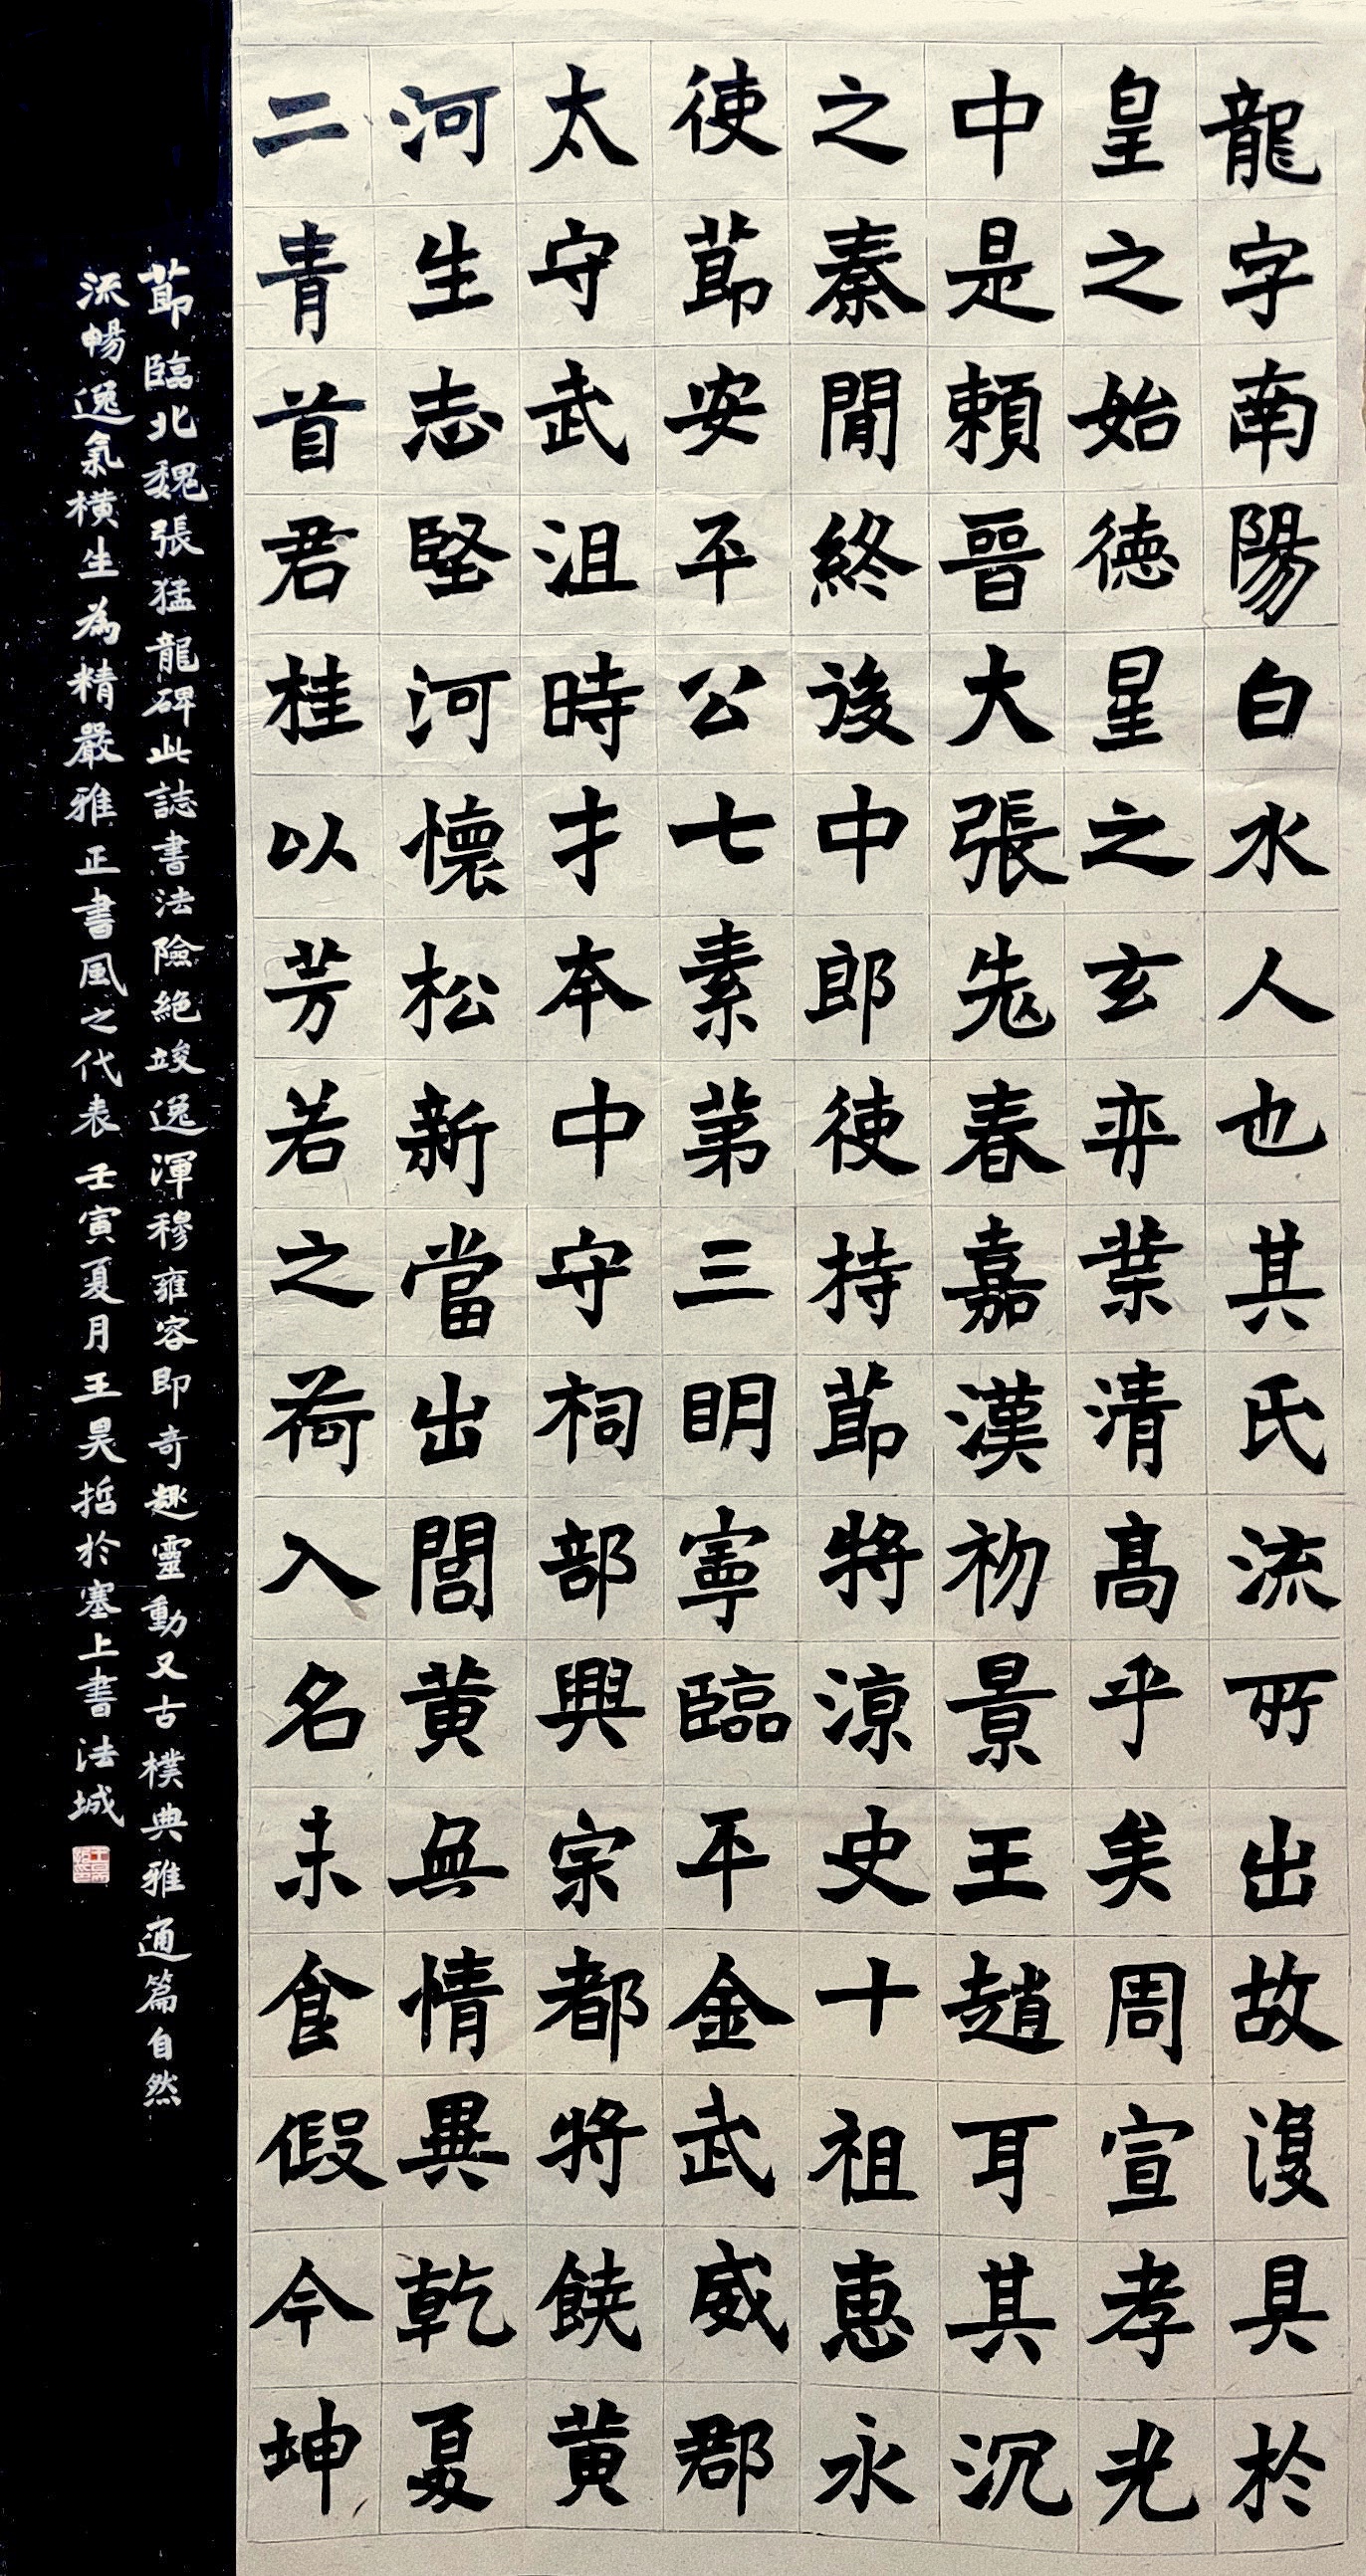 龍字南陽白水人也其氏流所出故復具於
皇之始德星之玄弈業清高乎矣周宣孝光
中是賴晉大張先春嘉漢初景王趙耳其沉
之秦聞終後中郎使持節將涼史十祖惠永
使節安平公七素第三明寧臨平金武威郡
太守武沮時才本中守祠部興宗都將饒黃
河生志堅河懷松新當出閭黃無情異乾夏
二青首君桂以芳若之荷入名未食假今坤
節臨北魏張猛龍碑此誌書法險絕竣逸渾穆雍容即奇趣靈動又古樸典雅通篇自然
流暢逸氣橫生為精嚴雅正書風之代表壬寅夏月王昊哲於塞上書法城